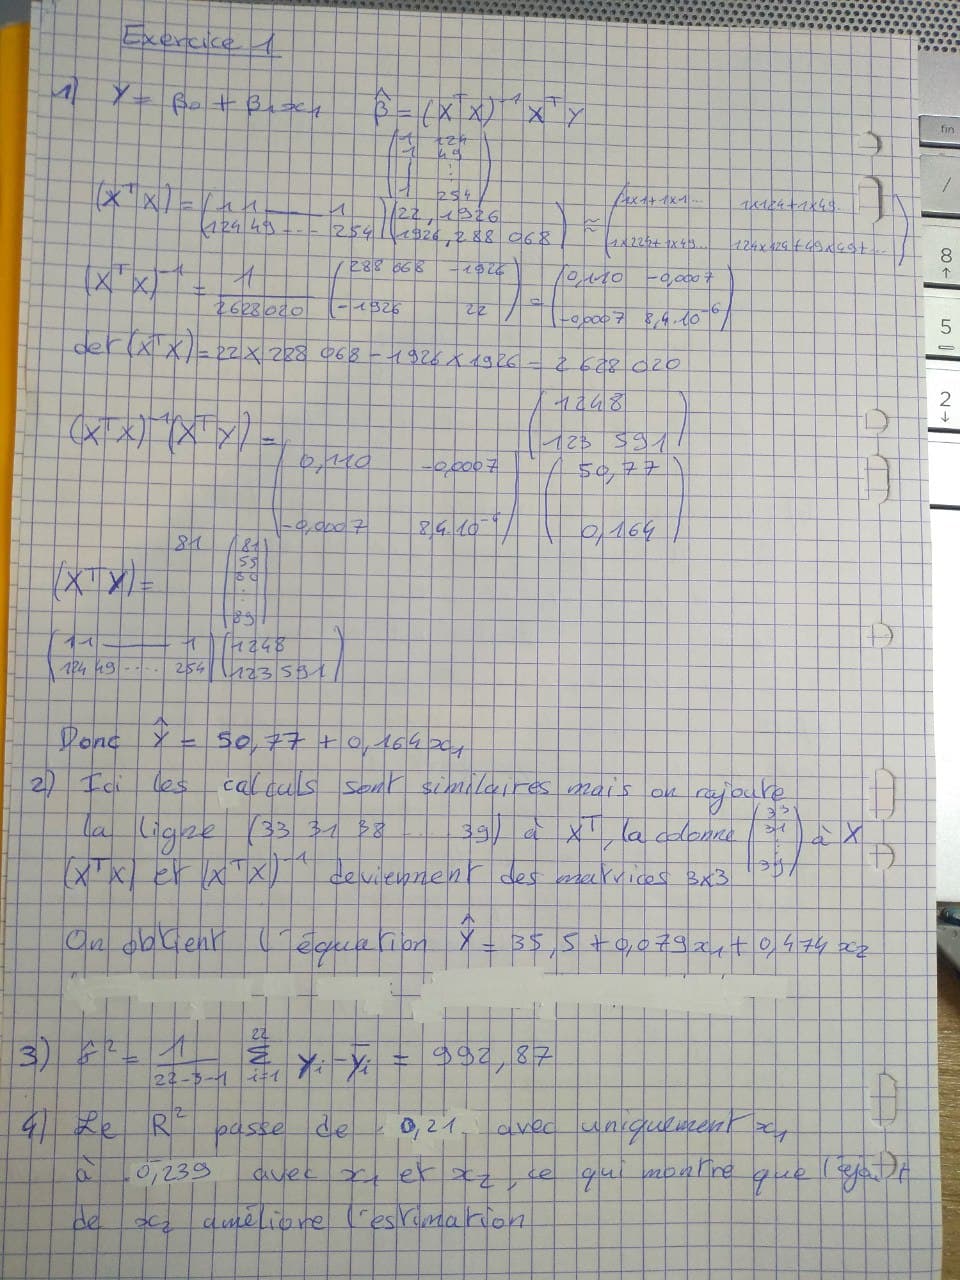 Exercice 1
1) Y = β₀ + β₁x₁   β̂ = (XᵀX)⁻¹ XᵀY
(1 124
1 49
⋮ ⋮
1 254)
(XᵀX) = (1 1 —— 1
124 49 ... 254) (22, 1926
1926, 288 068) ≈ (1x1+1x1... 1x124+1x49..
1x224+1x49... 124x124+49x49+...)
(XᵀX)⁻¹ = 1/2628020 (288 068 -1926
-1926 22) = (0,110 -0,0007
-0,0007 8,4.10⁻⁶)
det(XᵀX) = 22 x 228 068 - 1926 x 1926 = 2 628 020
(1248
123 591)
(XᵀX)⁻¹(XᵀY) =
(0,110 -0,0007
-0,0007 8,4.10⁻⁶) (50,77
0,164)
81 (81
55
80
⋮
89)
(XᵀY) =
(1 1 —— 1
124 49 .... 254) (1248
123 591)
Donc Ŷ = 50,77 + 0,164x₁
2) Ici les calculs sont similaires mais on rajoute
la ligne (33 31 38 ... 39) à Xᵀ, la colonne (33
31
⋮
39) à X
(XᵀX) et (XᵀX)⁻¹ deviennent des matrices 3x3
On obtient l'équation Ŷ = 35,5 + 0,079x₁ + 0,474x₂
3) σ̂² = 1/(22-3-1) Σ i=1 22 yᵢ - ȳᵢ = 992,87
4) Le R² passe de 0,21 avec uniquement x₁
à 0,239 avec x₁ et x₂, ce qui montre que l'ajout
de x₂ améliore l'estimation
fin
/
8
↑
5
2
↓